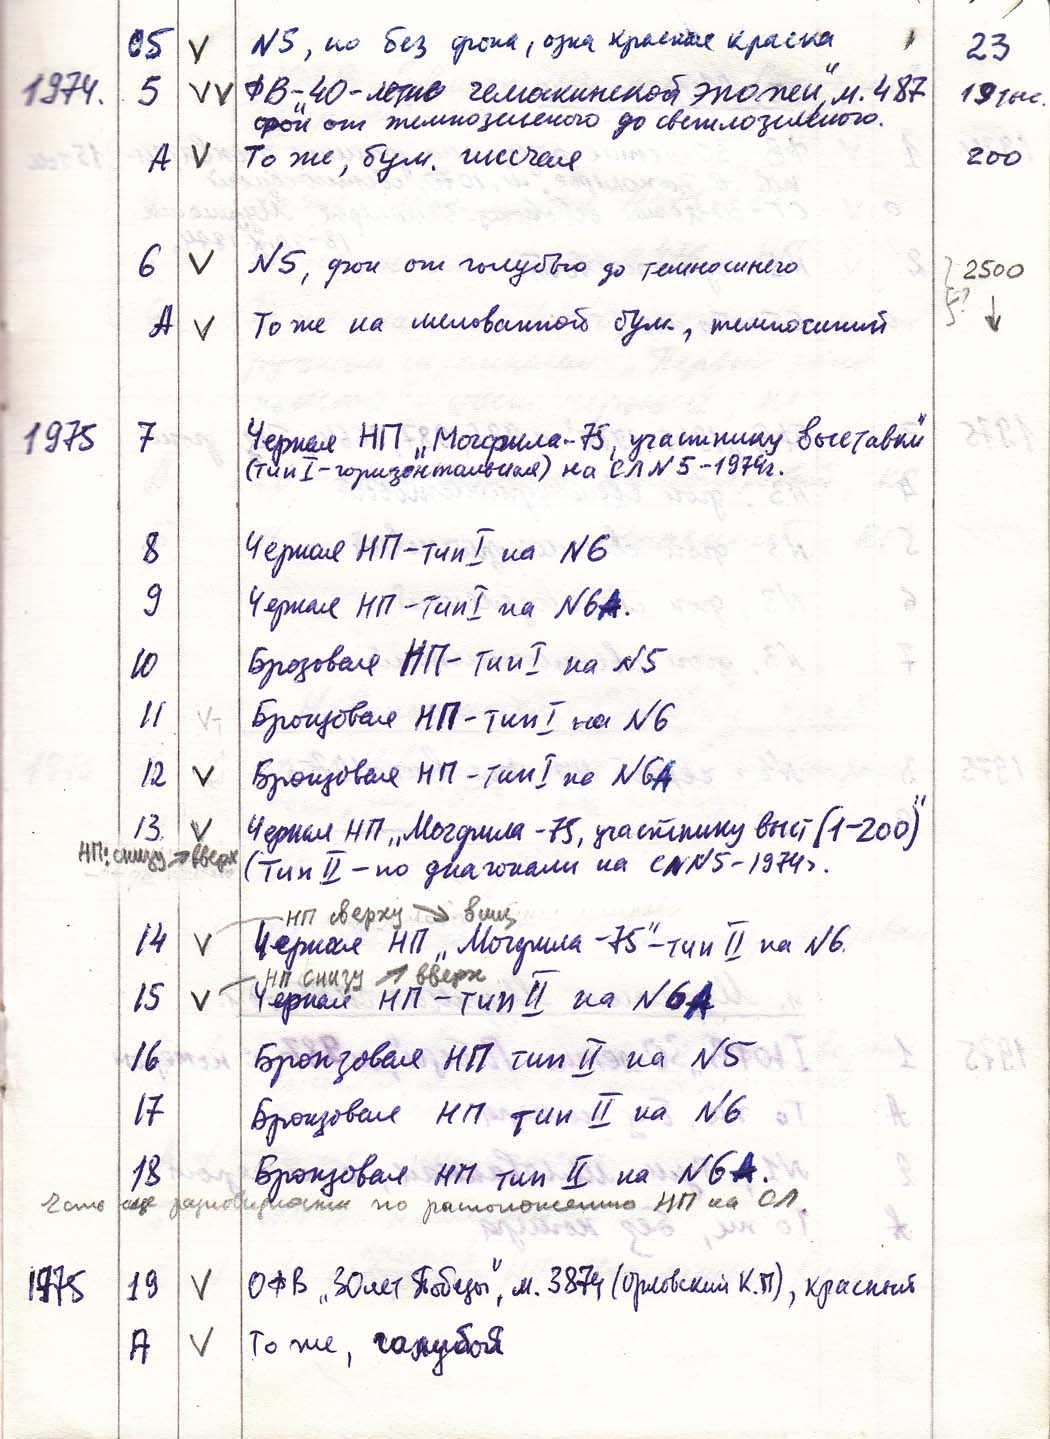 05 V N5, но без фона, одна красная краска 23
1974. 5 VV ФВ-„40-летие челюскинской эпопеи", м. 487 19 тыс.
фон от темнозеленого до светлозеленого.
А V То же, бум. 200
6 V N5, фон от голубого до темносинего 2500
А V То же на мелованной бум., темносиний ?
1975 7 Черная НП „Могфила-75, участнику выставки"
(тип I-горизонтальная) на СЛ N5-1974г.
8 Черная НП-тип I на N6
9 Черная НП-тип I на N6А.
10 Брозовая НП-тип I на N5
11 V Бронзовая НП-тип I на N6
12 V Бронзовая НП-тип I на N6А
13. V Черная НП „Могфила-75, участнику выст (1-200)"
НП: снизу → вверх (Тип II-по диагонали на СЛ N5-1974г.
НП сверху → вниз
14 V Черная НП „Могфила-75"-тип II на N6.
НП снизу ↗ вверх
15 V Черная НП-тип II на N6А
16 Бронзовая НП тип II на N5
17 Бронзовая НП тип II на N6
18 Бронзовая НП тип II на N6А.
Есть еще разновидности по расположению НП на СЛ.
1975 19 V ОФВ „30 лет Победы", м. 3874 (Орловский К.П), красный
А V То же, голубой